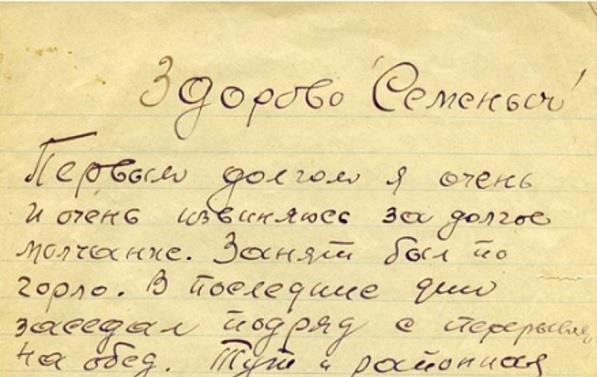 Здорово Семеныч!
Первым долгом я очень
и очень извиняюсь за долгое
молчание. Занят был по
горло. В последние дни
заседал подряд с перерывом
на обед. Тут и районная